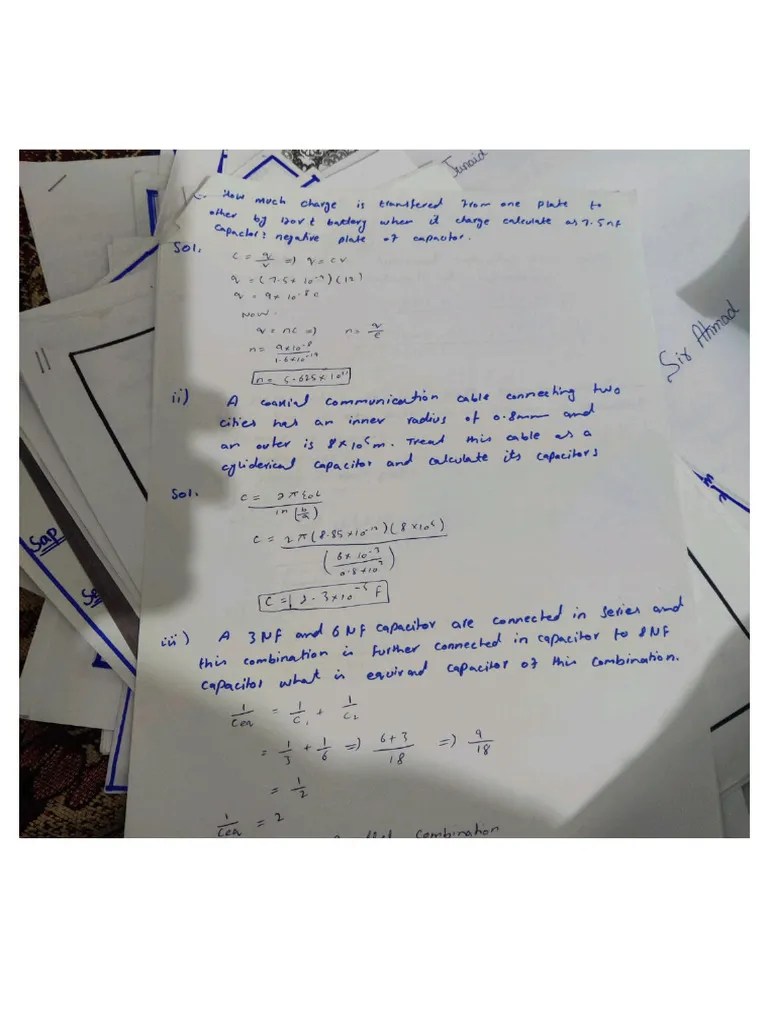 Junaid
How much charge is transfered from one plate to
other by 120vt battery when it charge calculate as 7.5nf
Capactor? negative plate of capacitor.
Sol.
C = q/v => q = cv
q = (7.5 x 10⁻⁹)(12)
q = 9x10⁻⁸c
Now.
q = ne => n = q/e
n = 9x10⁻⁸/1.6x10⁻¹⁹
n = 5.625x10¹¹
Sir Ahmad
ii) A coaxial communication cable connecting two
cities has an inner radius of 0.8mm and
an outer is 8x10⁵m. Tread this cable as a
cyliderical capacitor and calculate its capacitors
Sol.
C = 2πε₀L/ln(b/a)
C = 2π(8.85x10⁻¹²)(8x10⁵)/(6x10⁻³/0.8x10⁻³)
C = 2.3x10⁻⁵ F
Sap
iii) A 3NF and 6NF capacitor are connected in series and
this combination is further connected in capacitor to 8NF
capacitor what is equirand capacitor of this combination.
1/Ceq = 1/C₁ + 1/C₂
= 1/3 + 1/6 => 6+3/18 => 9/18
= 1/2
1/Ceq = 2
combination